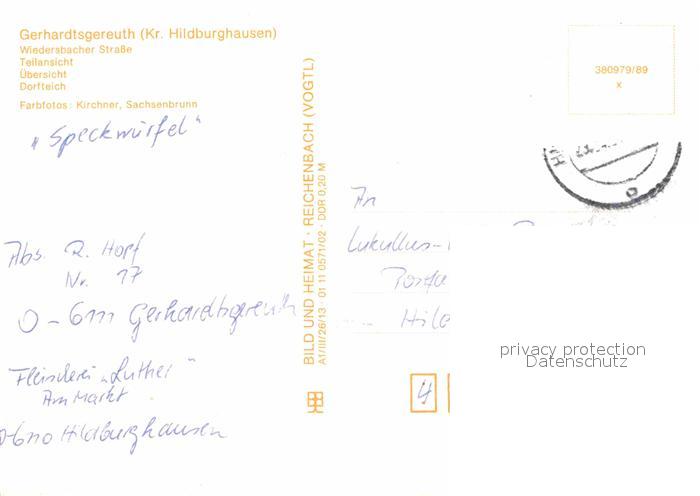 Gerhardtsgereuth (Kr. Hildburghausen)
Wiedersbacher Straße
Teilansicht
Übersicht
Dorfteich
Farbfotos: Kirchner, Sachsenbrunn
„Speckwürfel"
Abs. R. Hopf
Nr. 17
O-6111 Gerhardtsgereuth
Fleischerei „Luther"
Am Markt
O-6110 Hildburghausen
BILD UND HEIMAT · REICHENBACH (VOGTL)
A1/III/26/13 · 01 11 0571/02 · DDR 0,20 M
380979/89
x
An
Lukullus-
Postfa
Hild
4
privacy protection
Datenschutz